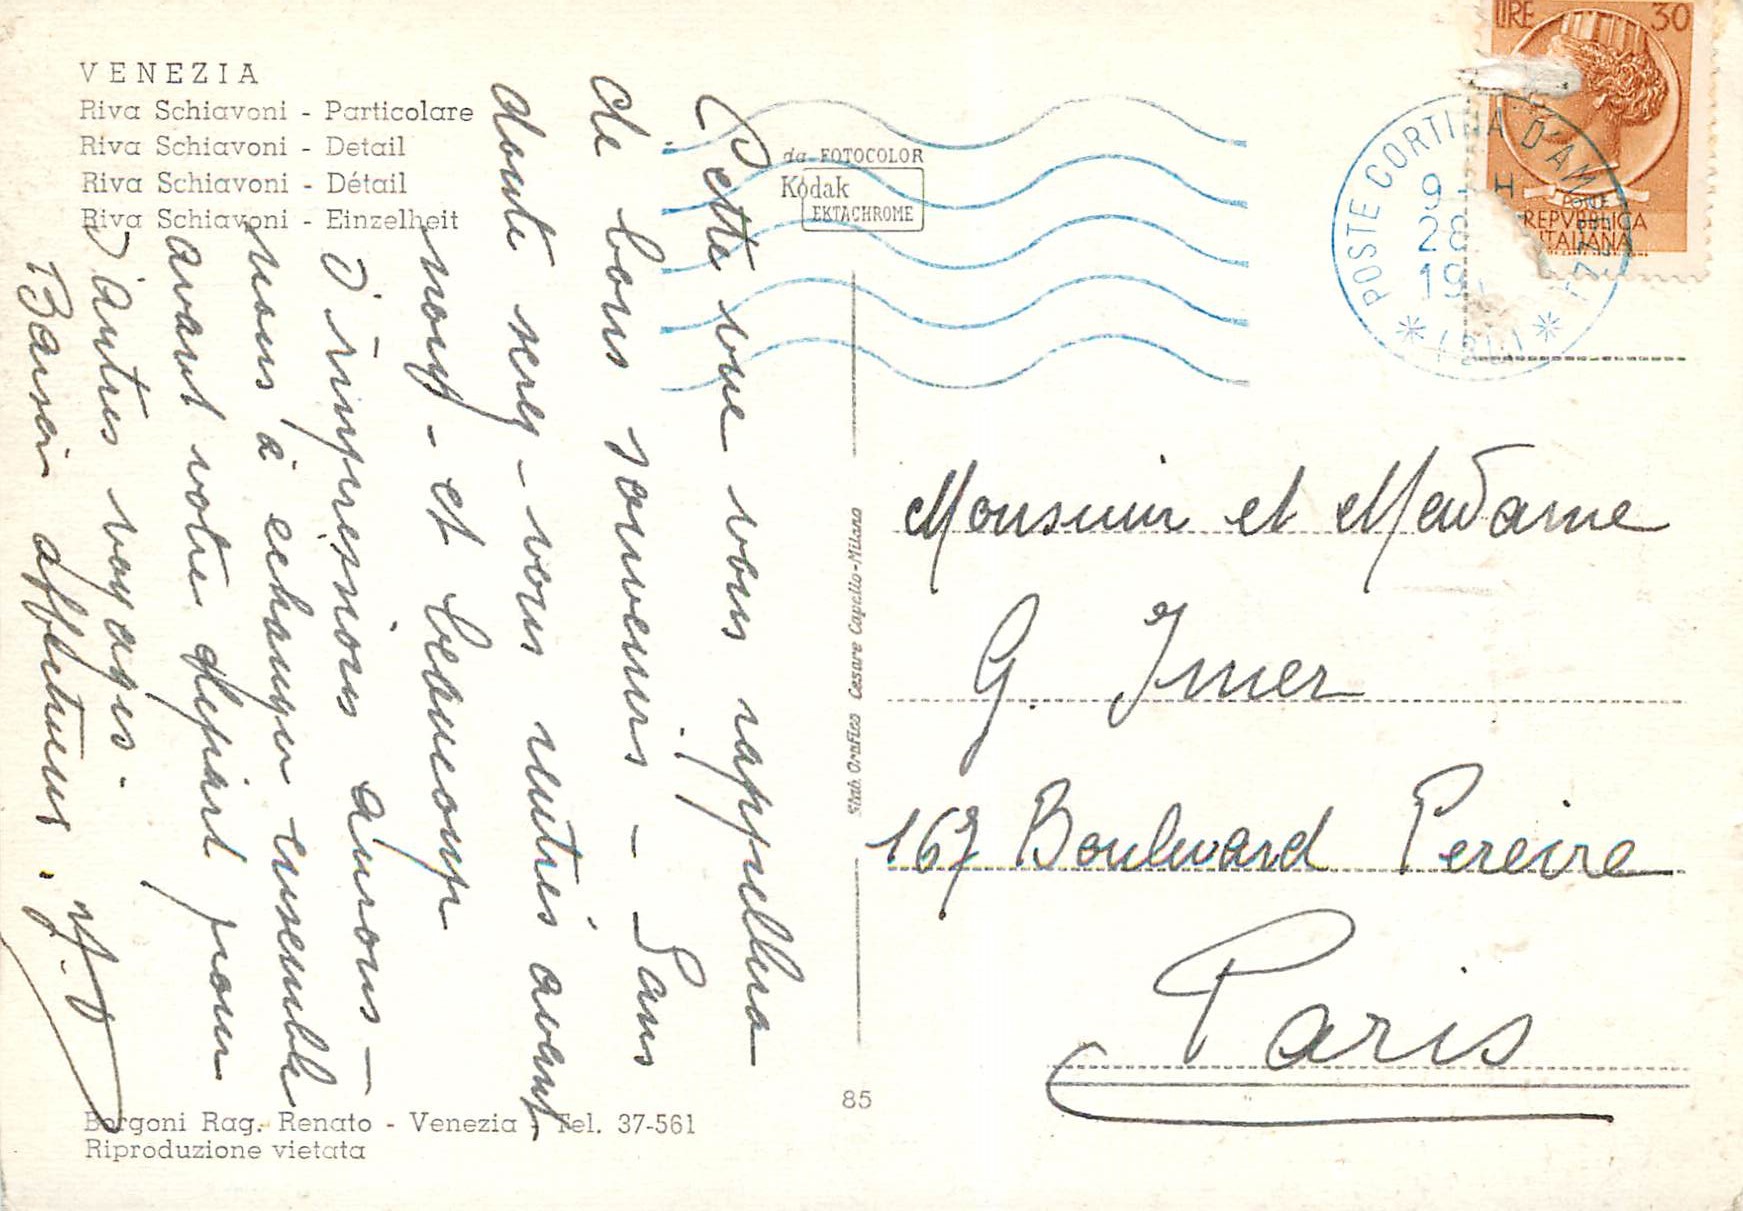 VENEZIA
Riva Schiavoni - Particolare
Riva Schiavoni - Detail
Riva Schiavoni - Détail
Riva Schiavoni - Einzelheit
Cette vue vous rappellera
de bons souvenirs - Sans
doute serez-vous rentrés avant
nous - et beaucoup
d'impressions aurons-
nous à échanger ensemble
avant votre départ pour
d'autres voyages.
Baisers affectueux.
Borgoni Rag. Renato - Venezia - Tel. 37-561
Riproduzione vietata
da FOTOCOLOR
Kodak
EKTACHROME
Stab. Grafico Cesare Capello-Milano
85
LIRE 30
REPVBBLICA
ITALIANA
POSTE CORTINA D'AM
9 - H
28
19
Monsieur et Madame
G. Imer
167 Boulevard Pereire
Paris